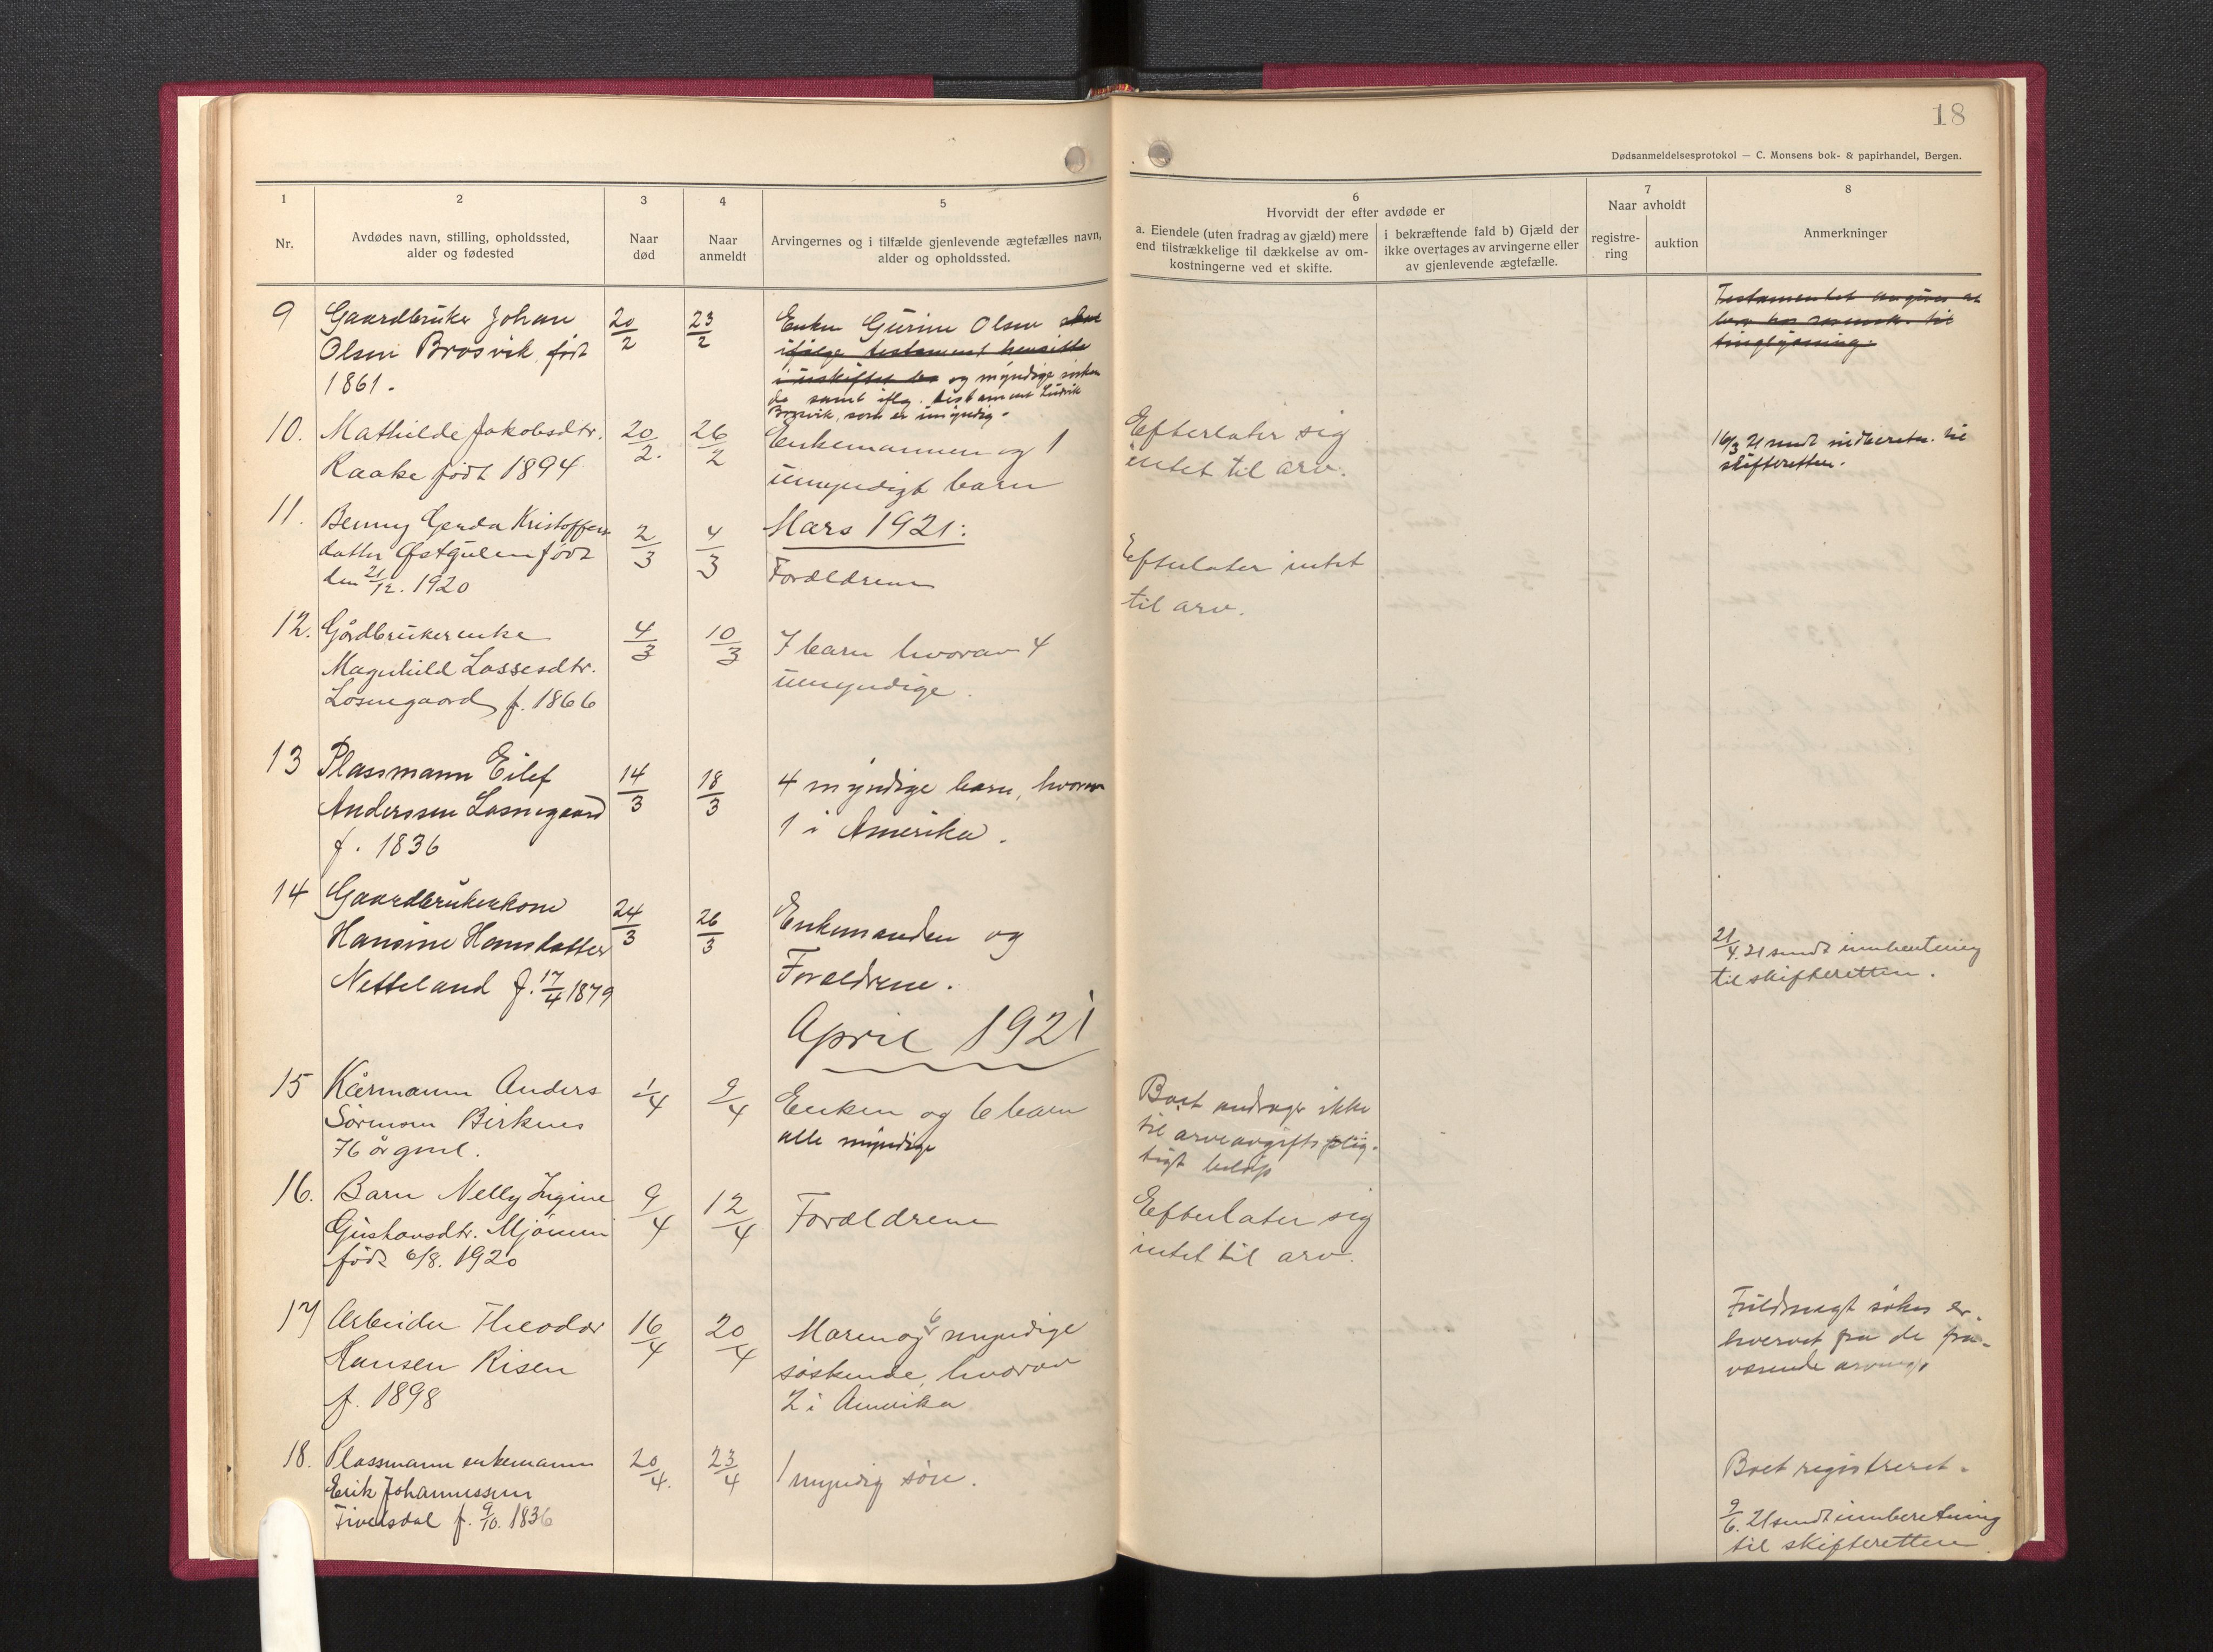 18
Dødsanmeldelsesprotokol — C. Monsens bok- & papirhandel, Bergen.
1
Nr.
2
Avdødes navn, stilling, opholdssted,
alder og fødested
3
Naar
død
4
Naar
anmeldt
5
Arvingernes og i tilfælde gjenlevende ægtefælles navn,
alder og opholdssted.
6
Hvorvidt der efter avdøde er
a. Eiendele (uten fradrag av gjæld) mere
end tilstrækkelige til dækkelse av om-
kostningerne ved et skifte.
i bekræftende fald b) Gjæld der
ikke overtages av arvingerne eller
av gjenlevende ægtefælle.
7
Naar avholdt
registre-
ring
auktion
8
Anmerkninger
9
Gaardbruker Johan
Olsen Brosvik født
1861.
20/2
23/2
Enken Gurine Olsen skal
ifølge testament hensitte
i uskiftet bo og myndige søsken
de samt iflg. testament Ludvik
Brosvik, som er umyndig.
Testamentet angives at
være hos sorensk. til
tinglysning.
10.
Mathilde Jakobsdtr.
Raake født 1894
20/2.
26/2
Enkemannen og 1
umyndigt barn
Efterlater sig
intet til arv.
16/3 21 sendt indberetn. til
skifteretten.
11.
Benny Gerda Kristoffers
datter Østgulen født
den 21/12. 1920
2/3
4/3
Mars 1921:
Forældrene
Efterlater intet
til arv.
12.
Gårdbrukerenke
Magnhild Lassesdtr.
Losnegaard f. 1866
4/3
10/3
7 barn hvorav 4
umyndige.
13
Plassmann Eilef
Anderssen Losnegaard
f. 1836
14/3
18/3
4 myndige barn, hvorav
1 i Amerika.
14
Gaardbrukerkone
Hansine Hansdatter
Netteland f. 17/4 1879
24/3
26/3
Enkemanden og
Forældrene.
21/4. 21 sendt innberetning
til skifteretten.
April 1921
15
Kårmann Anders
Sørensen Birknes
76 år gml.
1/4
9/4
Enken og 6 barn
alle myndige
Boet andrager ikke
til arveavgiftsplig-
tigt beløp
16.
Barn Nelly Ingine
Gustavsdtr. Mjømen
født 6/8. 1920
9/4
12/4
Forældrene
Efterlater sig
intet til arv.
17
Arbeider Theodor
Hansen Risen
f. 1898
16/4
20/4
Moren og 6 myndige
søskende, hvorav
2 i Amerika
Fuldmagt søkes er-
hvervet fra de fra-
værende arvinger
18.
Plassmann enkemann
Erik Johannessen
Tivelsdal f. 9/10. 1836
20/4.
23/4
1 myndig søn.
Boet registreret.
9/6. 21 sendt innberetning
til skifteretten.